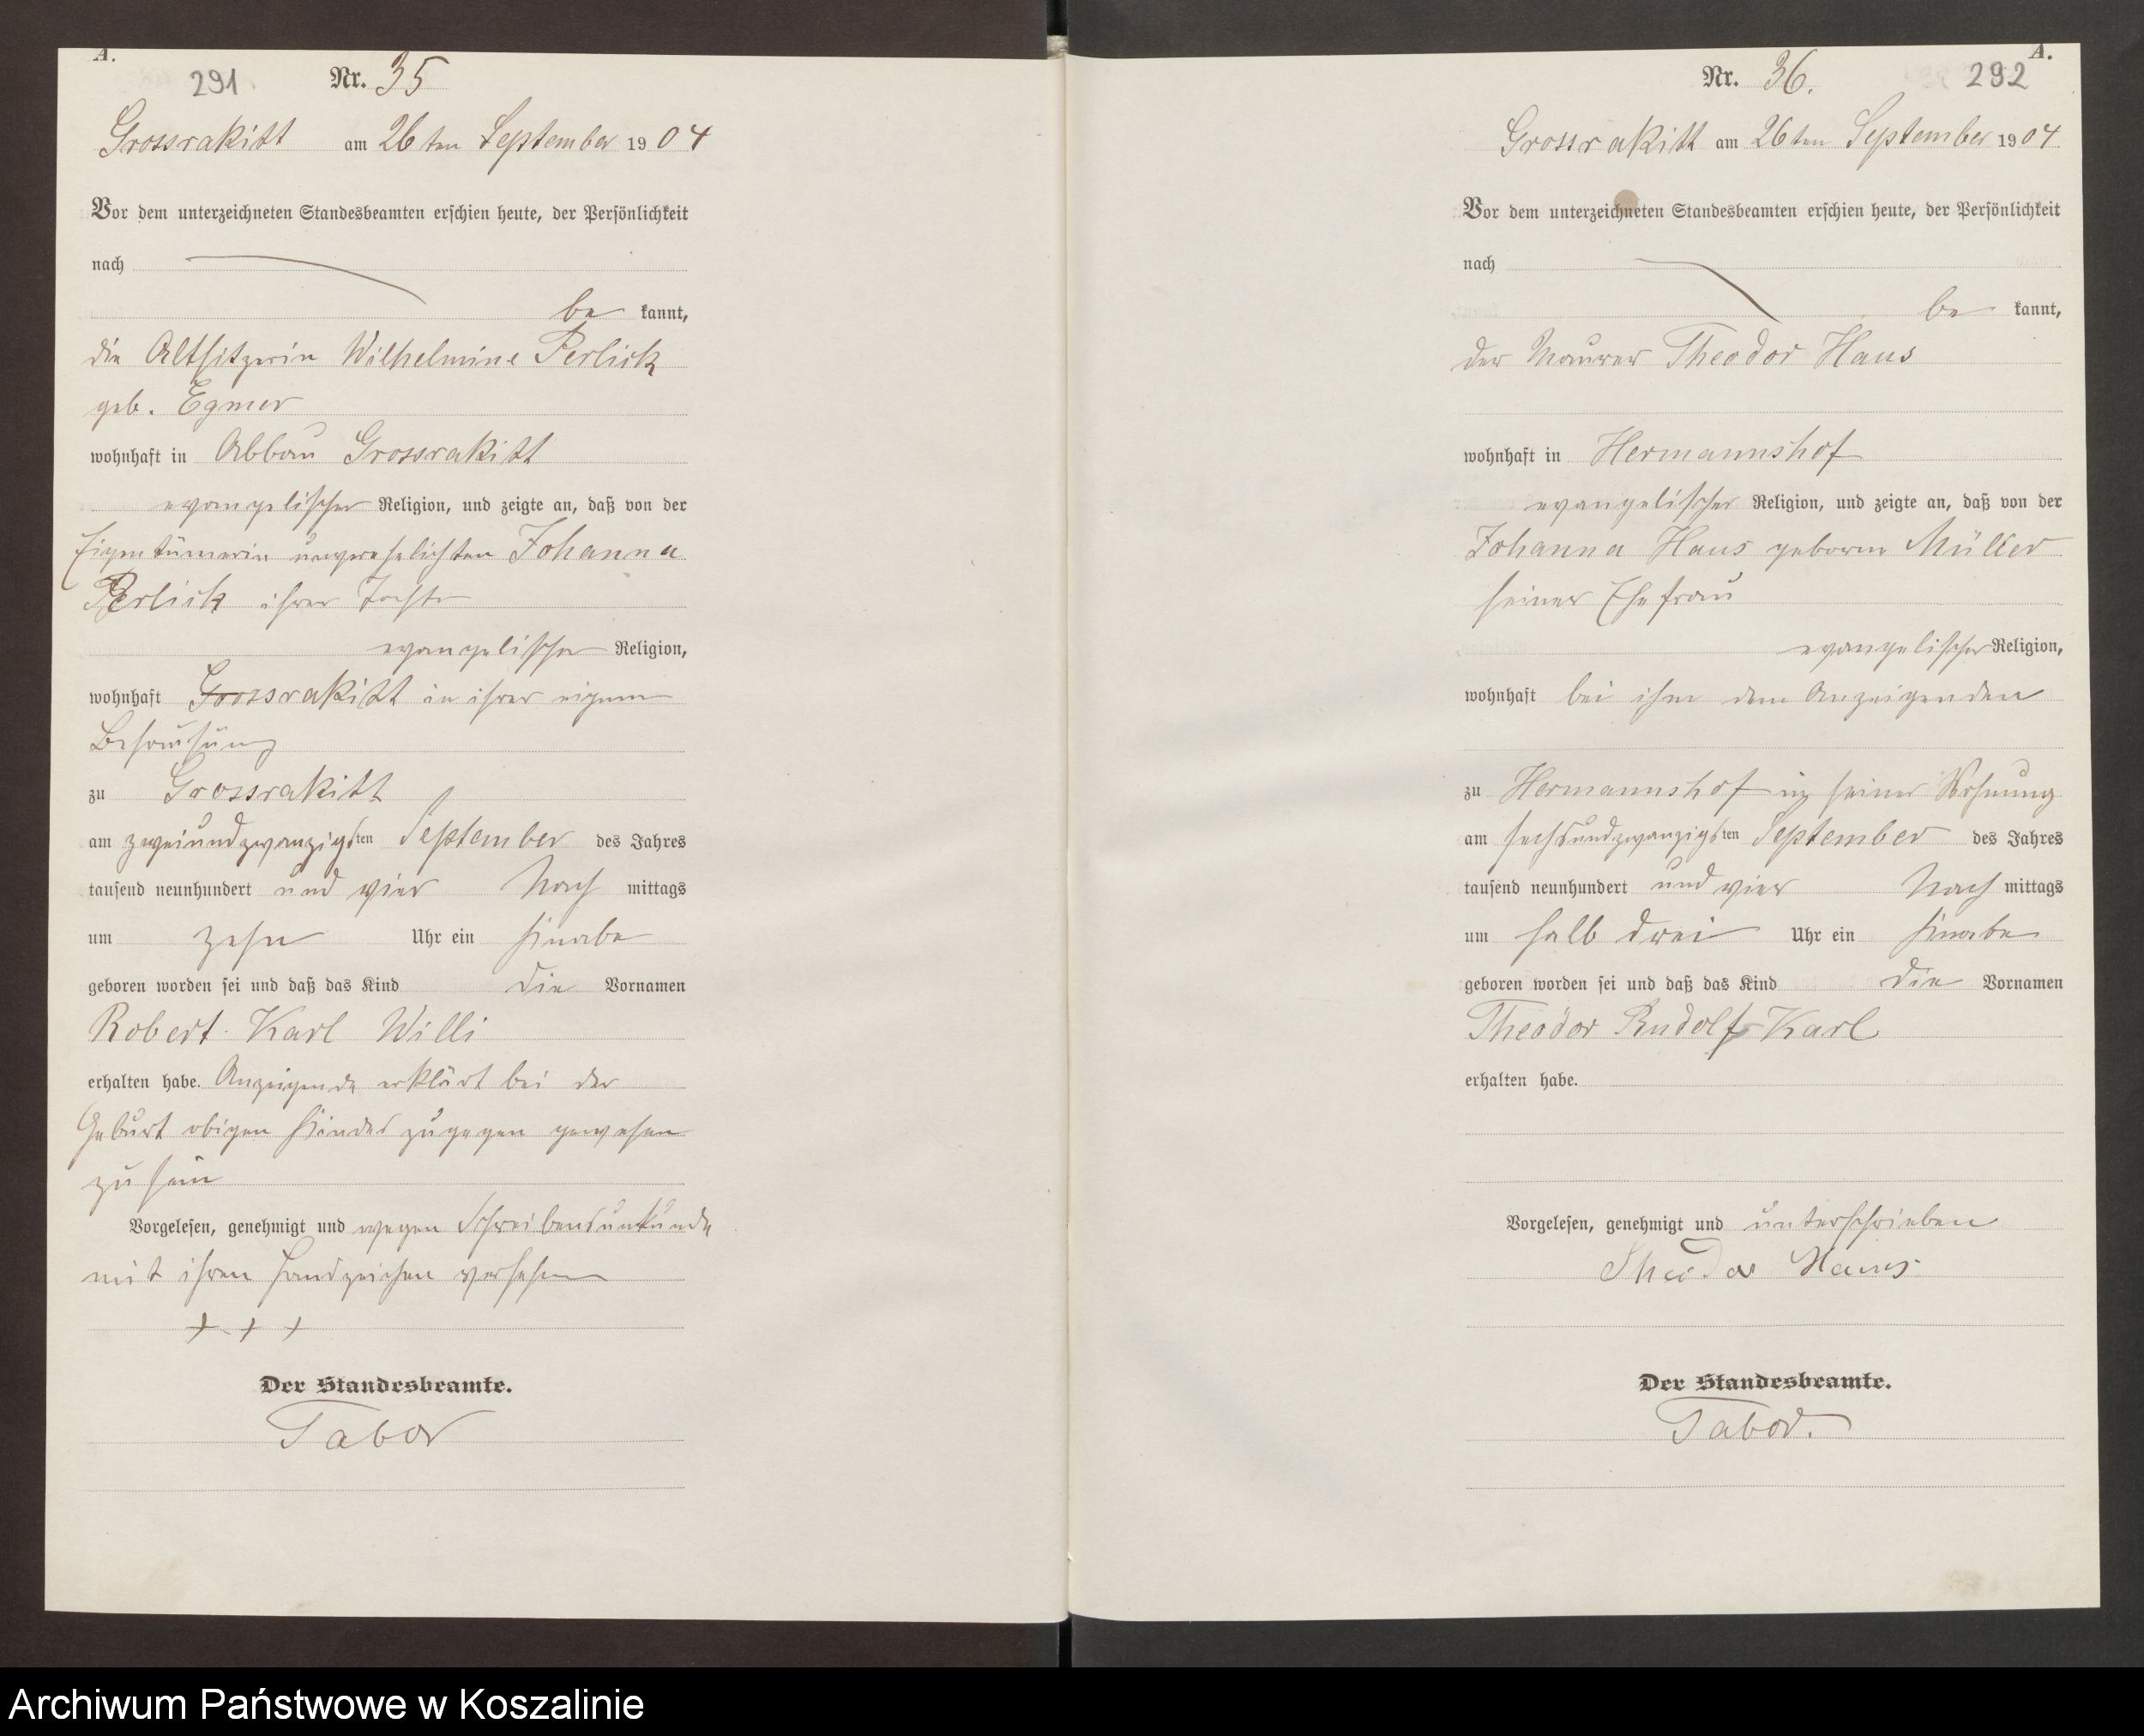 A.
291
Nr. 35
Grossrakitt am 26ten September 1904
Vor dem unterzeichneten Standesbeamten erschien heute, der Persönlichkeit
nach
be kannt,
die Altsitzerin Wilhelmine Perlick
geb. Egmer
wohnhaft in Abbau Grossrakitt
evangelischer Religion, und zeigte an, daß von der
Eigentümerin unverehelichten Johanna
Perlick ihrer Tochter
evangelischer Religion,
wohnhaft Grossrakitt in ihrer eigenen
Behausung
zu Grossrakitt
am zweiundzwanzigsten September des Jahres
tausend neunhundert und vier Nach mittags
um zehn Uhr ein Knabe
geboren worden sei und daß das Kind die Vornamen
Robert Karl Willi
erhalten habe. Anzeigende erklärt bei der
Geburt obigen Kindes zugegen gewesen
zu sein
Vorgelesen, genehmigt und wegen Schreibensunkunde
mit ihren Handzeichen versehen
+ + +
Der Standesbeamte.
Tabor
A.
Nr. 36. 292
Grossrakitt am 26ten September 1904
Vor dem unterzeichneten Standesbeamten erschien heute, der Persönlichkeit
nach
be kannt,
der Maurer Theodor Haus
wohnhaft in Hermannshof
evangelischer Religion, und zeigte an, daß von der
Johanna Haus geborne Müller
seiner Ehefrau
evangelischer Religion,
wohnhaft bei ihm dem Anzeigenden
zu Hermannshof in seiner Wohnung
am sechsundzwanzigsten September des Jahres
tausend neunhundert und vier Nach mittags
um halb drei Uhr ein Knabe
geboren worden sei und daß das Kind die Vornamen
Theodor Rudolf Karl
erhalten habe.
Vorgelesen, genehmigt und unterschrieben
Theodor Haus
Der Standesbeamte.
Tabor.
Archiwum Państwowe w Koszalinie